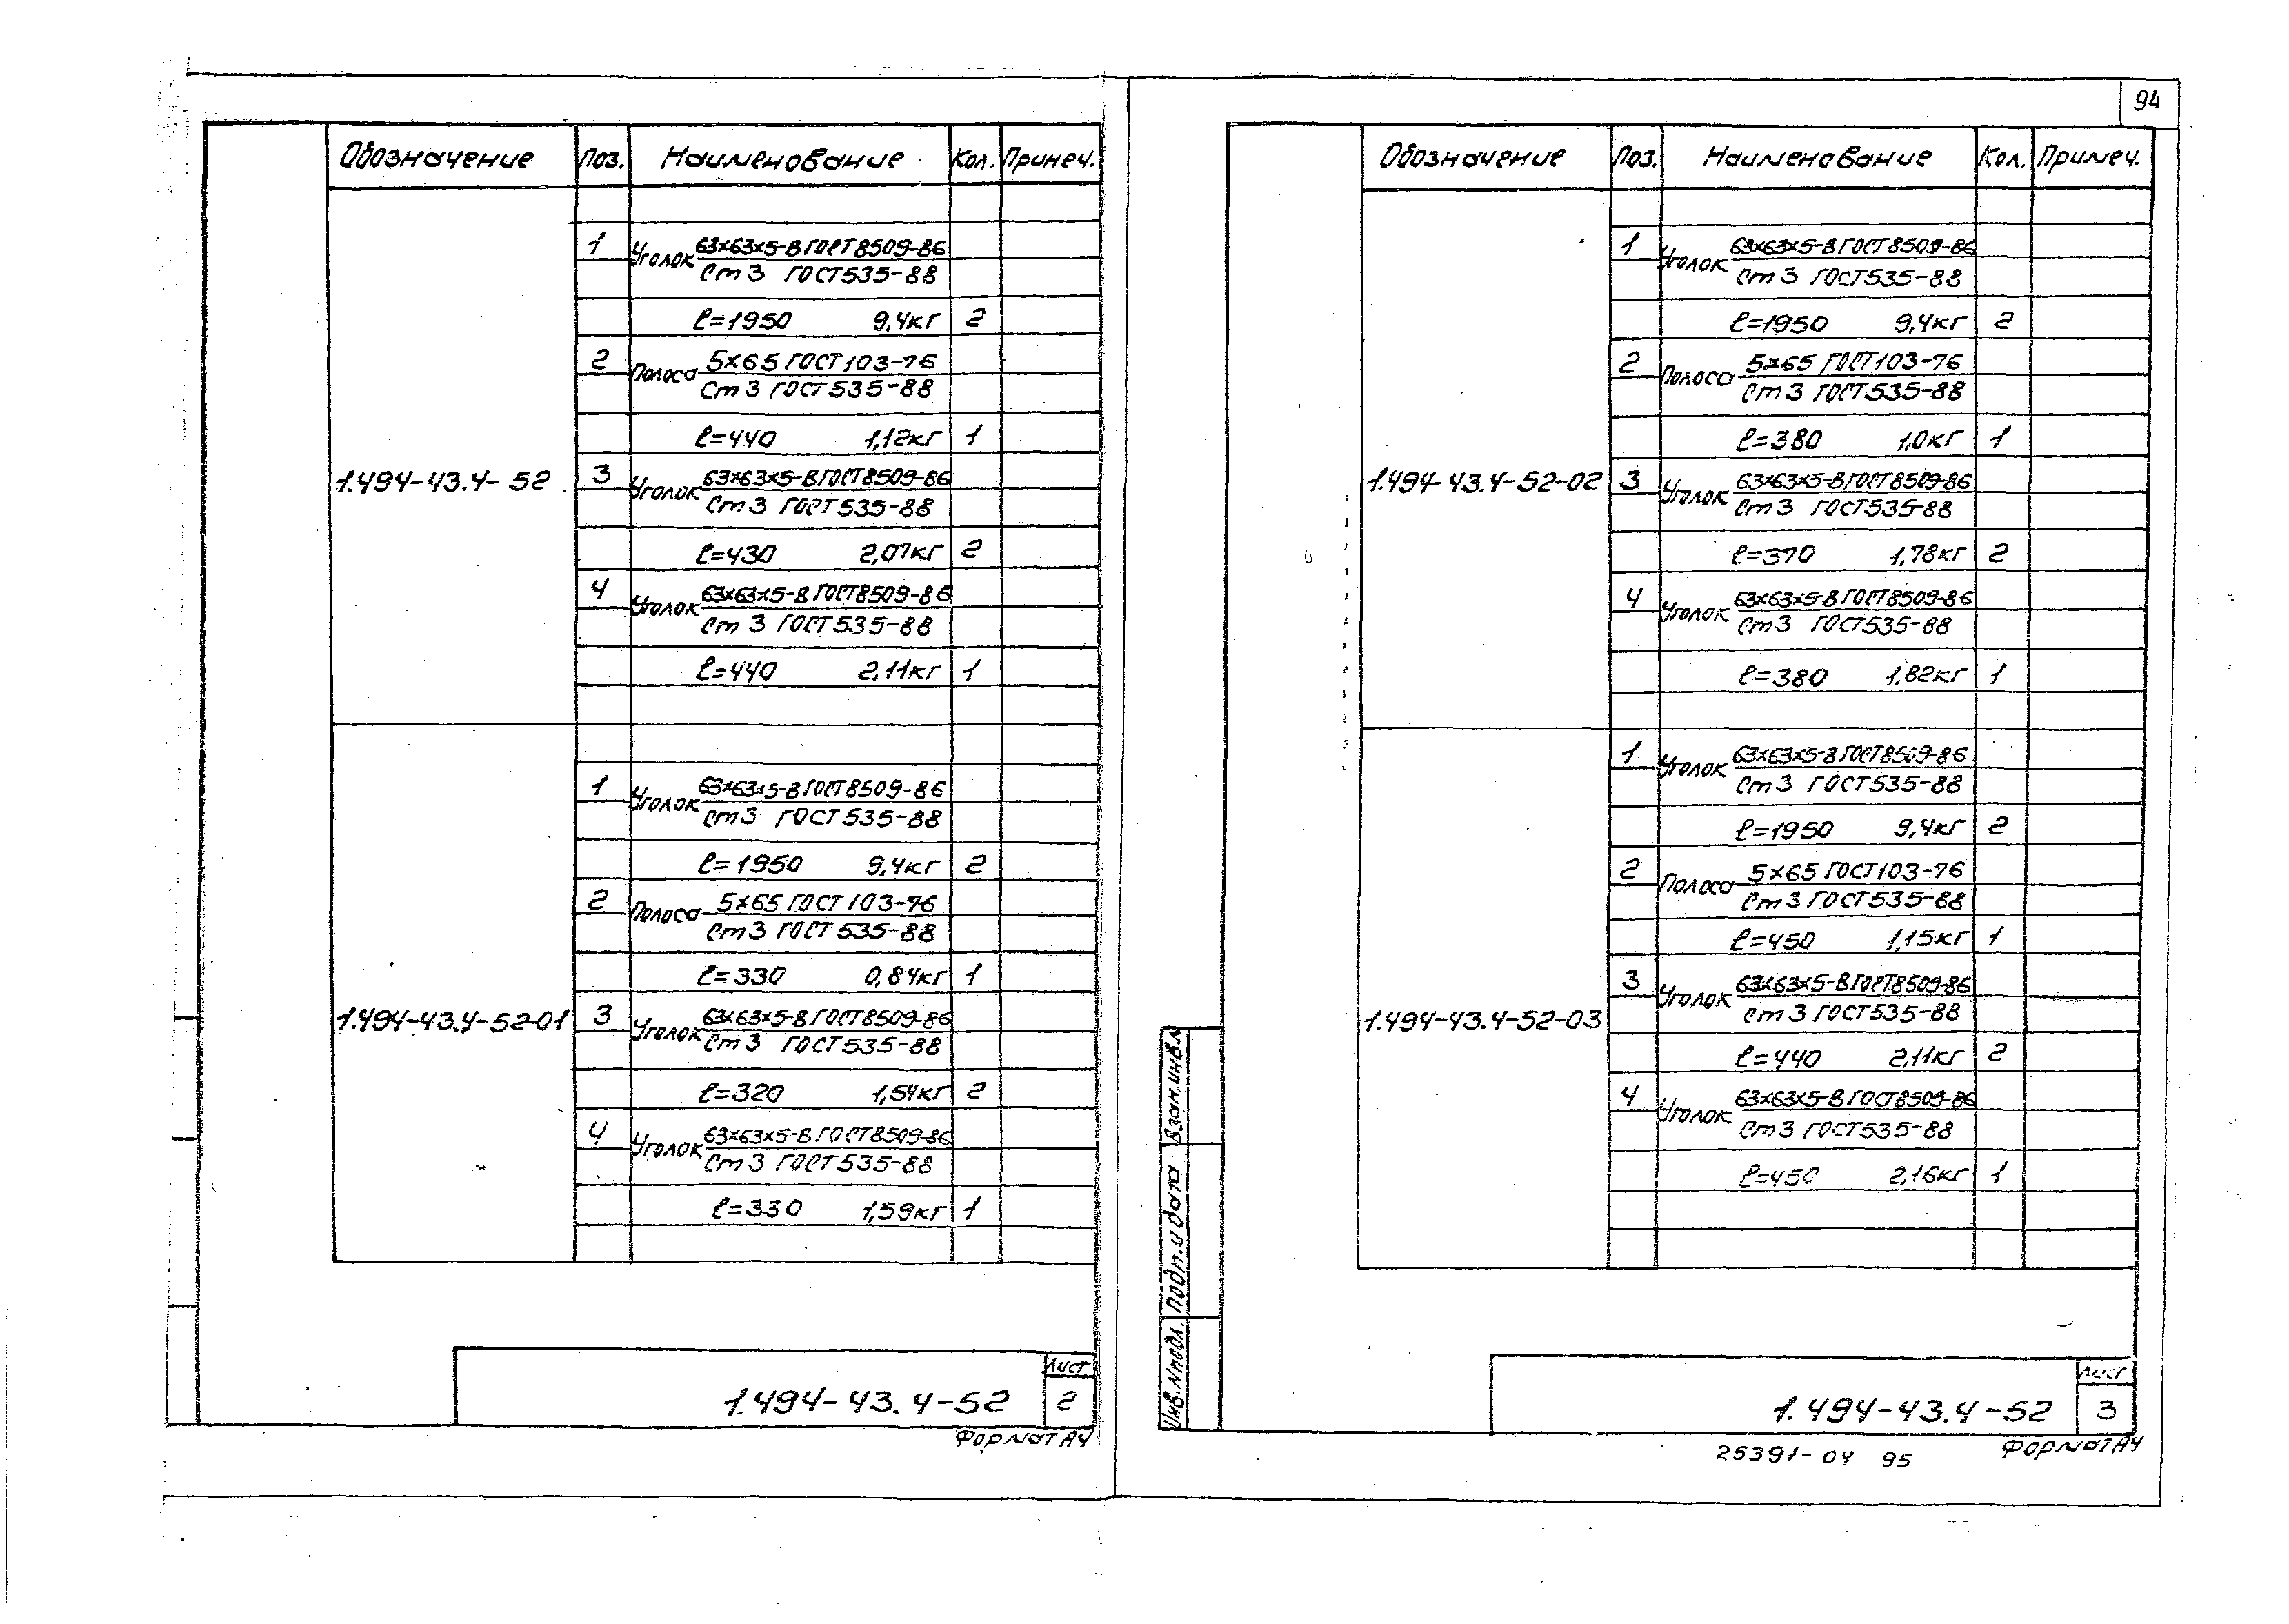 94
Обозначение Поз. Наименование Кол. Примеч.
1 Уголок 63×63×5-В ГОСТ 8509-86
Ст 3 ГОСТ 535-88
ℓ=1950 9,4кг 2
2 Полоса 5×65 ГОСТ 103-76
Ст 3 ГОСТ 535-88
ℓ=440 1,12кг 1
1.494-43.4-52 3 Уголок 63×63×5-В ГОСТ 8509-86
Ст 3 ГОСТ 535-88
ℓ=430 2,07кг 2
4 Уголок 63×63×5-В ГОСТ 8509-86
Ст 3 ГОСТ 535-88
ℓ=440 2,11кг 1
1 Уголок 63×63×5-В ГОСТ 8509-86
Ст 3 ГОСТ 535-88
ℓ=1950 9,4кг 2
2 Полоса 5×65 ГОСТ 103-76
Ст 3 ГОСТ 535-88
ℓ=330 0,84кг 1
1.494-43.4-52-01 3 Уголок 63×63×5-В ГОСТ 8509-86
Ст 3 ГОСТ 535-88
ℓ=320 1,54кг 2
4 Уголок 63×63×5-В ГОСТ 8509-86
Ст 3 ГОСТ 535-88
ℓ=330 1,59кг 1
Лист
1.494-43.4-52 2
Формат А4
Обозначение Поз. Наименование Кол. Примеч.
1 Уголок 63×63×5-В ГОСТ 8509-86
Ст 3 ГОСТ 535-88
ℓ=1950 9,4кг 2
2 Полоса 5×65 ГОСТ 103-76
Ст 3 ГОСТ 535-88
ℓ=380 1,0кг 1
1.494-43.4-52-02 3 Уголок 63×63×5-В ГОСТ 8509-86
Ст 3 ГОСТ 535-88
ℓ=370 1,78кг 2
4 Уголок 63×63×5-В ГОСТ 8509-86
Ст 3 ГОСТ 535-88
ℓ=380 1,82кг 1
1 Уголок 63×63×5-В ГОСТ 8509-86
Ст 3 ГОСТ 535-88
ℓ=1950 9,4кг 2
2 Полоса 5×65 ГОСТ 103-76
Ст 3 ГОСТ 535-88
ℓ=450 1,15кг 1
1.494-43.4-52-03 3 Уголок 63×63×5-В ГОСТ 8509-86
Ст 3 ГОСТ 535-88
ℓ=440 2,11кг 2
4 Уголок 63×63×5-В ГОСТ 8509-86
Ст 3 ГОСТ 535-88
ℓ=450 2,16кг 1
Взам.инв.№
Подп.и дата
Инв.№подл.
Лист
1.494-43.4-52 3
Формат А4
25391-04 95